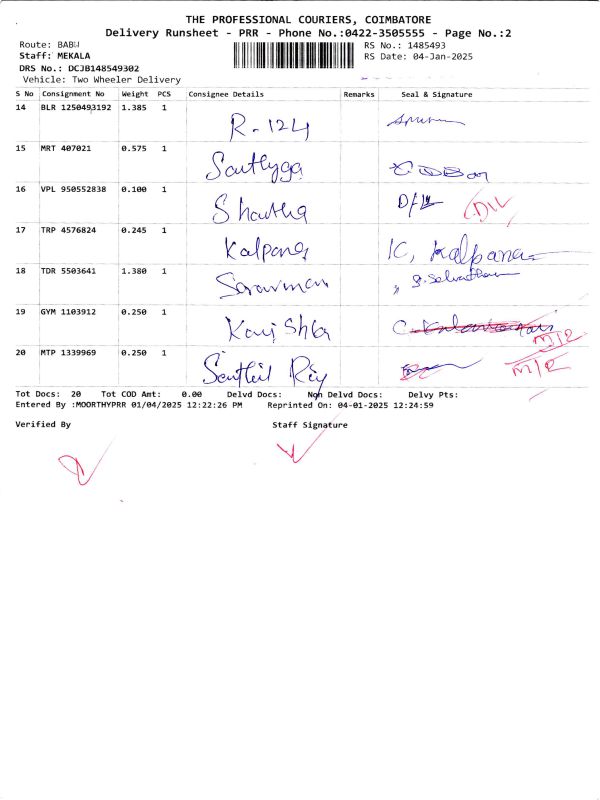 THE PROFESSIONAL COURIERS, COIMBATORE
Delivery Runsheet - PRR - Phone No.:0422-3505555 - Page No.:2
Route: BABW RS No.: 1485493
Staff: MEKALA RS Date: 04-Jan-2025
DRS No.: DCJB148549302
Vehicle: Two Wheeler Delivery
S No Consignment No Weight PCS Consignee Details Remarks Seal & Signature
14 BLR 1250493192 1.385 1 R-124
15 MRT 407021 0.575 1
16 VPL 950552838 0.100 1 D/L D/L
17 TRP 4576824 0.245 1 Kalpana K. Kalpana
18 TDR 5503641 1.380 1
19 GYM 1103912 0.250 1 M/R
20 MTP 1339969 0.250 1 M/R
Tot Docs: 20 Tot COD Amt: 0.00 Delvd Docs: Non Delvd Docs: Delvy Pts:
Entered By :MOORTHYPRR 01/04/2025 12:22:26 PM Reprinted On: 04-01-2025 12:24:59
Verified By Staff Signature